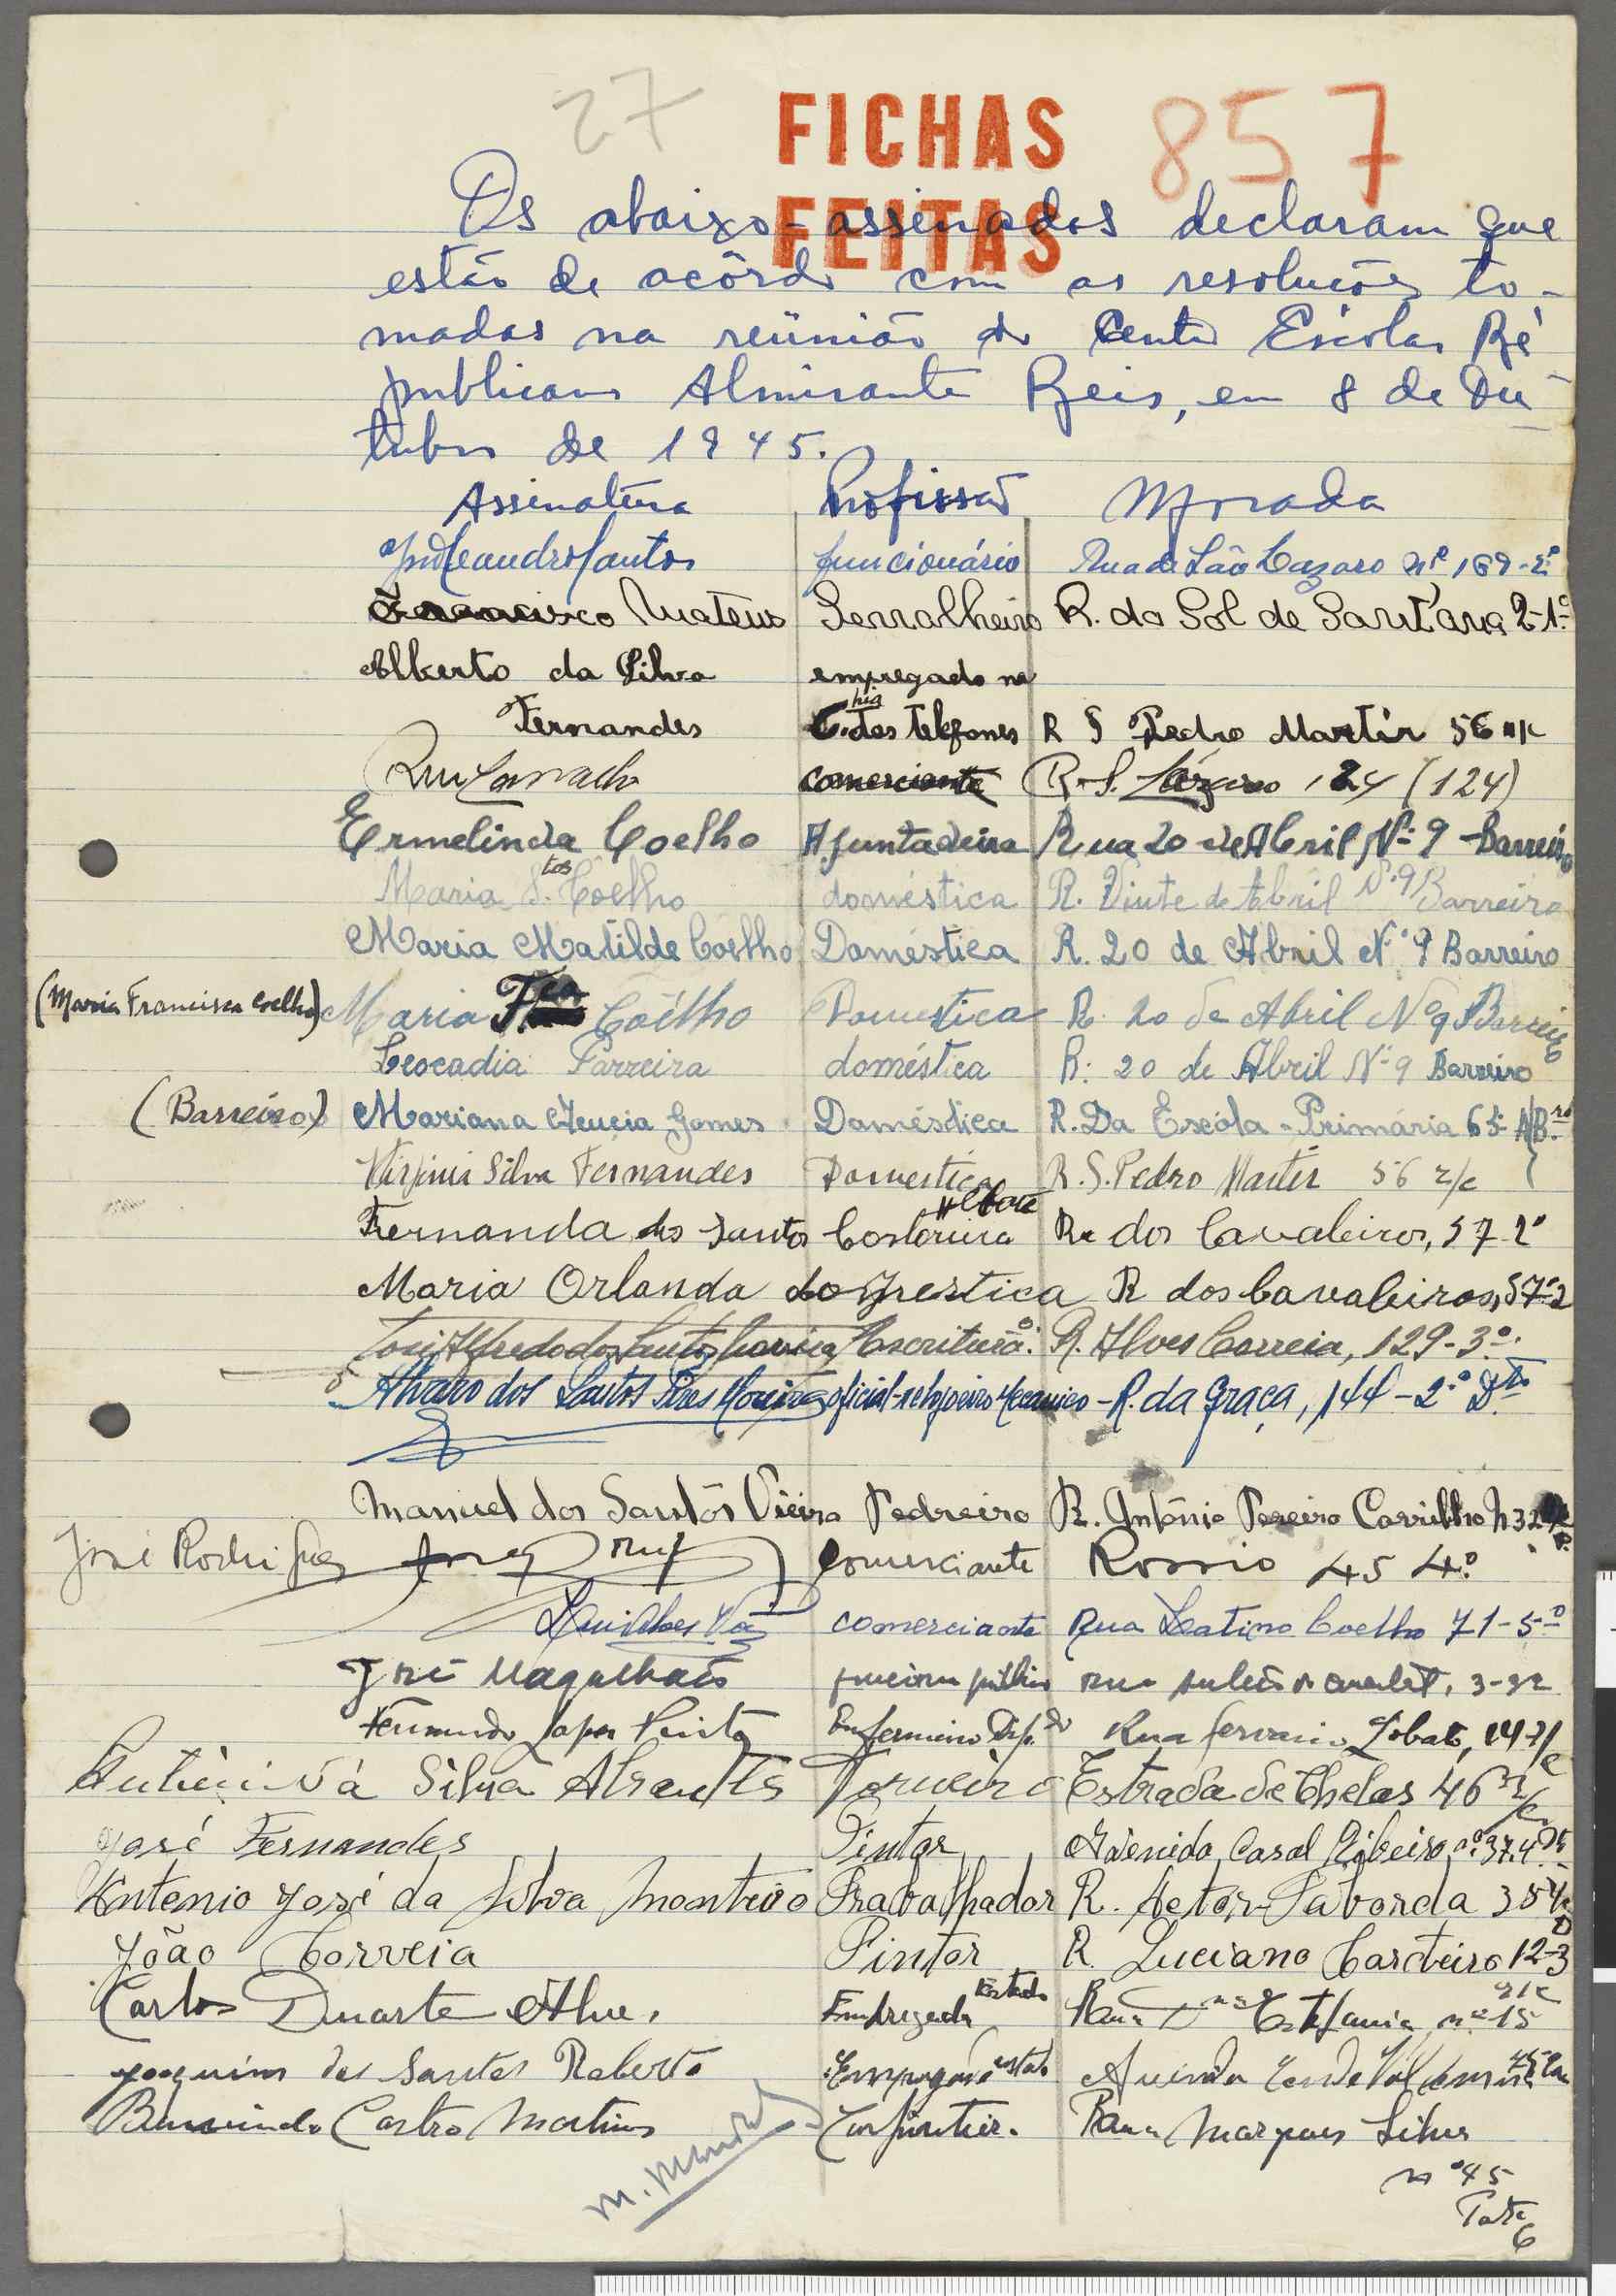 27
FICHAS
FEITAS
857
Os abaixo-assinados declaram que
estão de acôrdo com as resoluções to-
madas na reünião do Centro Escolar Ré
publicano Almirante Reis, em 8 de Ou-
tubro de 1945.
Assinatura Profissão Morada
Leandro Santos funcionário Rua de São Lazaro nº 169-2º
Francisco Mateus Serralheiro R. do Sol de Sant'ana 2-1º
Alberto da Silva empregado na
Fernandes C.hia dos Telefones R S Pedro Martir 56 r/c
comerciante R. S. Lázaro 124 (124)
Ermelinda Coelho Ajuntadeira Rua 20 de Abril Nº 9 - Barreiro
Maria S.tos Coelho doméstica R. Vinte de Abril Nº 9 Barreiro
Maria Matilde Coelho Doméstica R. 20 de Abril Nº 9 Barreiro
(Maria Francisca Coelho) Maria Fca Coêlho Domestica R. 20 de Abril Nº 9 Barreiro
Leocadia Parreira doméstica R: 20 de Abril Nº 9 Barreiro
(Barreiro) Mariana Lucia Gomes Doméstica R. Da Escóla-Primária 65 A/B.ro
Virginia Silva Fernandes Domestica R. S. Pedro Martir 56 r/c
Fernanda dos Santos Costoreira R. dos Cavaleiros, 57 2º
Maria Orlanda domestica R dos Cavaleiros, 57-2
José Alfredo dos Santos Escriturº. R. Alves Correia, 129-3º.
Alvaro dos Santos Pires Moreira oficial-relojoeiro Mecanico - R. da Graça, 144-2º Dto
Manuel dos Santos Vieira Pedreiro R. António Pereira Carrilho n 32
José Rodrigues Comerciante Rossio 45 4º
comerciante Rua Latino Coelho 71-5º
José Magalhães
Fernando Lopes Enfermeiro Rua Gervasio Lobato,
António da Silva Abrantes Torneiro Estrada de Chelas 46 r/c
José Fernandes Pintor Avenida Casal Ribeiro nº 37.4º Dt
Antonio José da Silva Monteiro Trabalhador R. Actor Taborda 35
João Correia Pintor R. Luciano Cordeiro 12-3
Carlos Duarte Alve. Empregado Estado Rua Dna Estefania nº 15 r/c
Joaquim dos Santos Roberto Empregado estado Avenida
Castro Martins Carpintier. Rua Marques Silva
nº 45
Porta
6